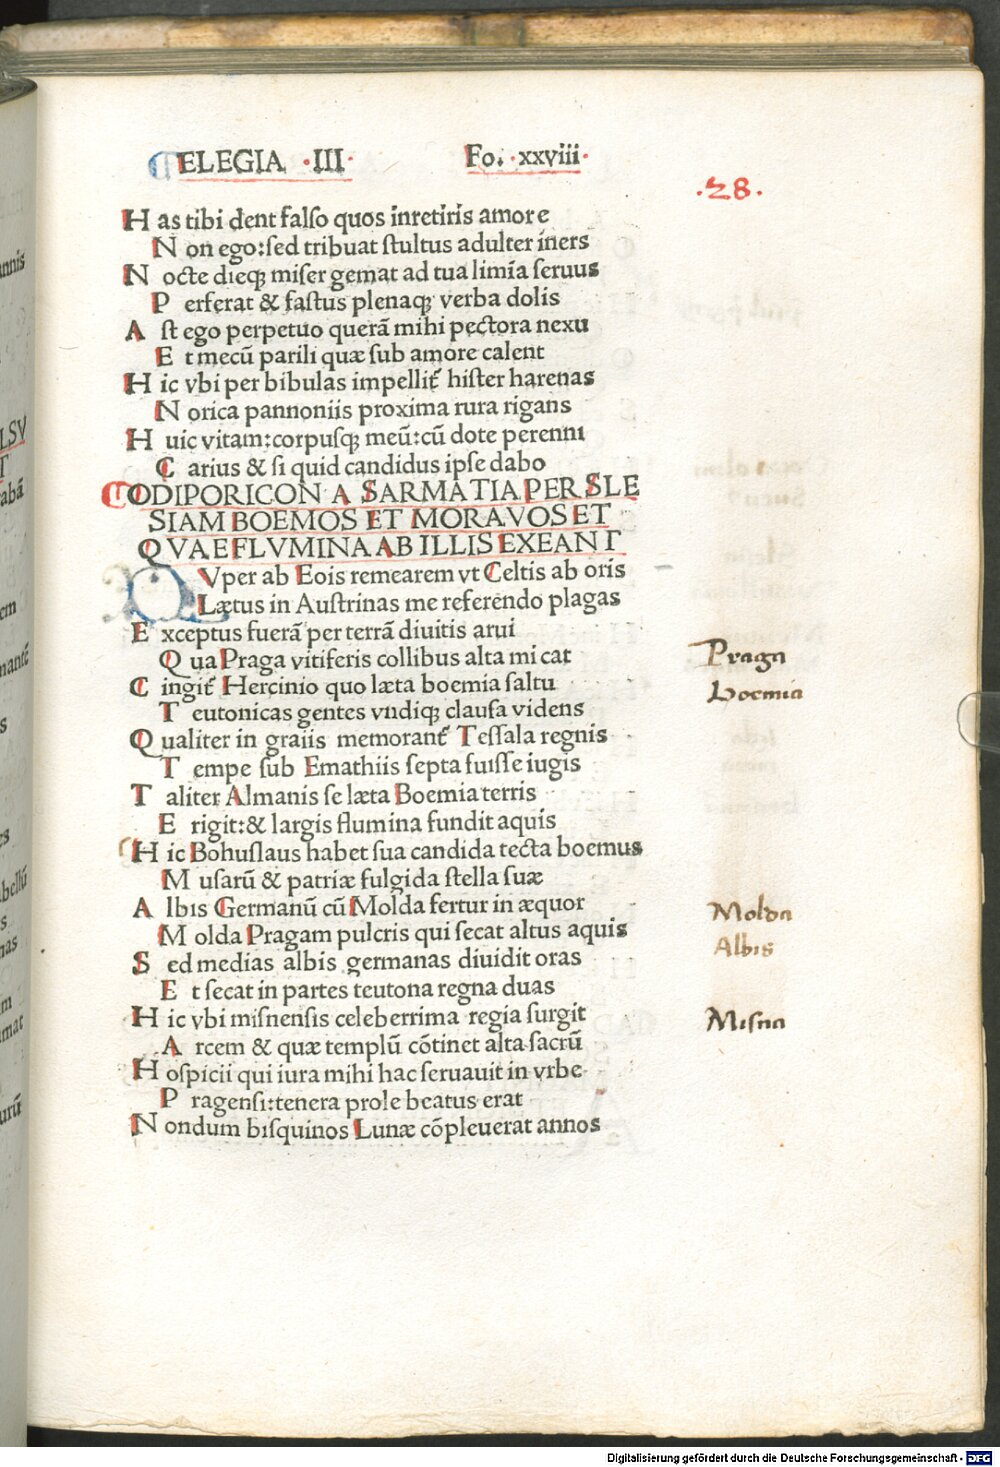 ELEGIA ·III·
Fo. ·xxviii·
·28·
H as tibi dent falſo quos inretiris amore
N on ego:ſed tribuat ſtultus adulter iners
N octe dieqꝫ miſer gemat ad tua limīa ſeruus
P erferat & faſtus plenaqꝫ verba dolis
A ſt ego perpetuo querā mihi pectora nexu
E t mecū parili quæ ſub amore calent
H ic vbi per bibulas impellit᷑ hiſter harenas
N orica pannoniis proxima rura rigans
H uic vitam:corpuſqꝫ meū:cū dote perenni
C arius & ſi quid candidus ipſe dabo
ODIPORICON A SARMATIA PER SLE
SIAM BOEMOS ET MORAVOS ET
QVAE FLVMINA AB ILLIS EXEANT
QVper ab Eois remearem vt Celtis ab oris
Lætus in Auſtrinas me referendo plagas
E xceptus fuerā per terrā diuitis arui
Q ua Praga vitiferis collibus alta micat
C ingit᷑ Hercinio quo læta boemia ſaltu
T eutonicas gentes vndiqꝫ clauſa videns
Q ualiter in graiis memorant᷑ Teſſala regnis
T empe ſub Emathiis ſepta fuiſſe iugis
T aliter Almanis ſe læta Boemia terris
E rigit:& largis flumina fundit aquis
H ic Bohuſlaus habet ſua candida tecta boemus
M uſarū & patriæ fulgida ſtella ſuæ
A lbis Germanū cū Molda fertur in æquor
M olda Pragam pulcris qui ſecat altus aquis
S ed medias albis germanas diuidit oras
E t ſecat in partes teutona regna duas
H ic vbi miſnenſis celeberrima regia ſurgit
A rcem & quæ templū cōtinet alta ſacrū
H oſpicii qui iura mihi hac ſeruauit in vrbe
P ragenſi:tenera prole beatus erat
N ondum biſquinos Lunæ cōpleuerat annos
Praga
boemia
Molda
Albis
Miſna
Digitalisierung gefördert durch die Deutsche Forschungsgemeinschaft - DFG